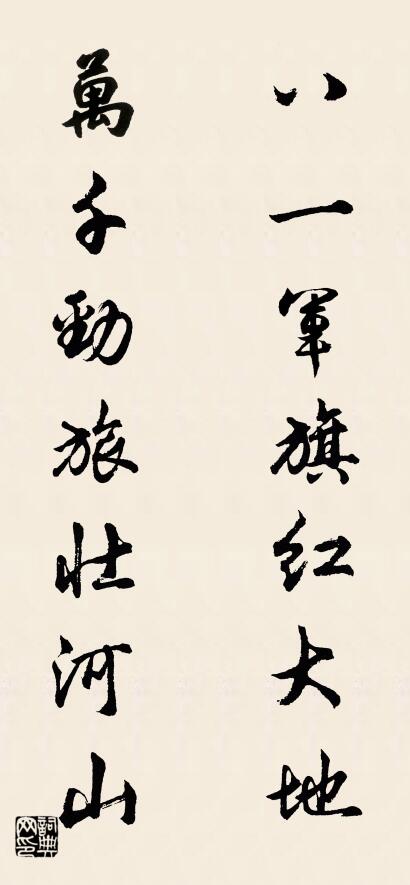 八一軍旗红大地
萬千勁旅壮河山
詞典网印